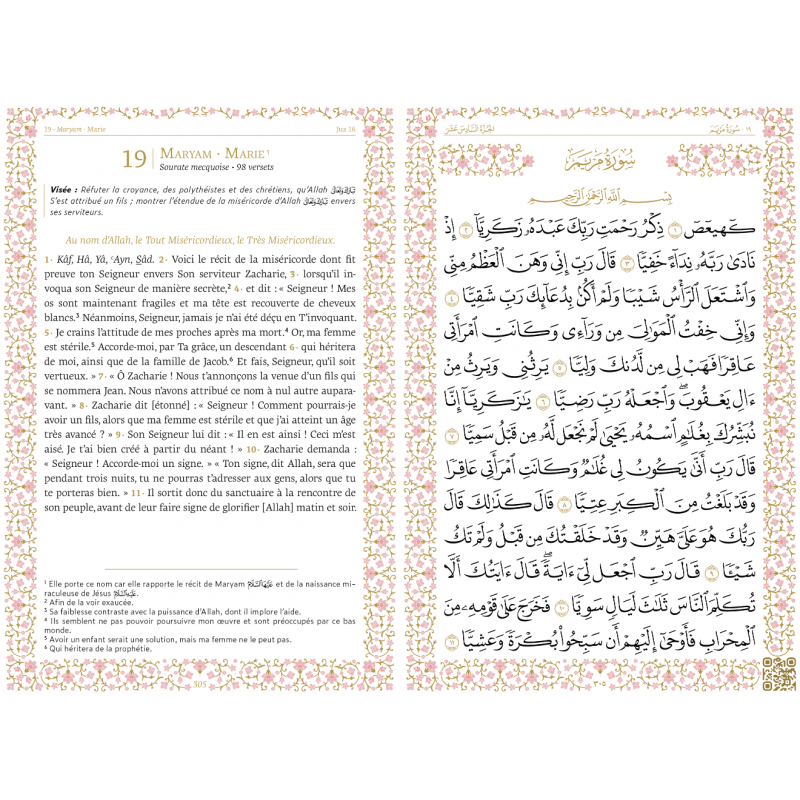 19 - Maryam - Marie
Juz 16
19 | MARYAM · MARIE ¹
Sourate mecquoise • 98 versets
Visée : Réfuter la croyance, des polythéistes et des chrétiens, qu'Allah
S'est attribué un fils ; montrer l'étendue de la miséricorde d'Allah envers
ses serviteurs.
Au nom d'Allah, le Tout Miséricordieux, le Très Miséricordieux.
1· Kâf, Hâ, Yâ, ʿAyn, Sâd. 2· Voici le récit de la miséricorde dont fit
preuve ton Seigneur envers Son serviteur Zacharie, 3· lorsqu'il in-
voqua son Seigneur de manière secrète,² 4· et dit : « Seigneur ! Mes
os sont maintenant fragiles et ma tête est recouverte de cheveux
blancs.³ Néanmoins, Seigneur, jamais je n'ai été déçu en T'invoquant.
5· Je crains l'attitude de mes proches après ma mort.⁴ Or, ma femme
est stérile.⁵ Accorde-moi, par Ta grâce, un descendant 6· qui héritera
de moi, ainsi que de la famille de Jacob.⁶ Et fais, Seigneur, qu'il soit
vertueux. » 7· « Ô Zacharie ! Nous t'annonçons la venue d'un fils qui
se nommera Jean. Nous n'avons attribué ce nom à nul autre aupara-
vant. » 8· Zacharie dit [étonné] : « Seigneur ! Comment pourrais-je
avoir un fils, alors que ma femme est stérile et que j'ai atteint un âge
très avancé ? » 9· Son Seigneur lui dit : « Il en est ainsi ! Ceci m'est
aisé. Je t'ai bien créé à partir du néant ! » 10· Zacharie demanda :
« Seigneur ! Accorde-moi un signe. » « Ton signe, dit Allah, sera que
pendant trois nuits, tu ne pourras t'adresser aux gens, alors que tu
te porteras bien. » 11· Il sortit donc du sanctuaire à la rencontre de
son peuple, avant de leur faire signe de glorifier [Allah] matin et soir.
¹ Elle porte ce nom car elle rapporte le récit de Maryam et de la naissance mi-
raculeuse de Jésus
² Afin de la voir exaucée.
³ Sa faiblesse contraste avec la puissance d'Allah, dont il implore l'aide.
⁴ Ils semblent ne pas pouvoir poursuivre mon œuvre et sont préoccupés par ce bas
monde.
⁵ Avoir un enfant serait une solution, mais ma femme ne le peut pas.
⁶ Qui héritera de la prophétie.
305
١٩ - سُورَةُ مَرْيَم
الجُزْءُ السَّادِسَ عَشَرَ
سُورَةُ مَرْيَمَ
بِسْمِ ٱللَّهِ ٱلرَّحْمَٰنِ ٱلرَّحِيمِ
كٓهيعٓصٓ ١ ذِكْرُ رَحْمَتِ رَبِّكَ عَبْدَهُۥ زَكَرِيَّآ ٢ إِذْ
نَادَىٰ رَبَّهُۥ نِدَآءً خَفِيًّا ٣ قَالَ رَبِّ إِنِّى وَهَنَ ٱلْعَظْمُ مِنِّى
وَٱشْتَعَلَ ٱلرَّأْسُ شَيْبًا وَلَمْ أَكُنۢ بِدُعَآئِكَ رَبِّ شَقِيًّا ٤
وَإِنِّى خِفْتُ ٱلْمَوَٰلِىَ مِن وَرَآءِى وَكَانَتِ ٱمْرَأَتِى
عَاقِرًا فَهَبْ لِى مِن لَّدُنكَ وَلِيًّا ٥ يَرِثُنِى وَيَرِثُ مِنْ
ءَالِ يَعْقُوبَ ۖ وَٱجْعَلْهُ رَبِّ رَضِيًّا ٦ يَٰزَكَرِيَّآ إِنَّا
نُبَشِّرُكَ بِغُلَٰمٍ ٱسْمُهُۥ يَحْيَىٰ لَمْ نَجْعَل لَّهُۥ مِن قَبْلُ سَمِيًّا ٧
قَالَ رَبِّ أَنَّىٰ يَكُونُ لِى غُلَٰمٌ وَكَانَتِ ٱمْرَأَتِى عَاقِرًا
وَقَدْ بَلَغْتُ مِنَ ٱلْكِبَرِ عِتِيًّا ٨ قَالَ كَذَٰلِكَ قَالَ
رَبُّكَ هُوَ عَلَىَّ هَيِّنٌ وَقَدْ خَلَقْتُكَ مِن قَبْلُ وَلَمْ تَكُ
شَيْـًٔا ٩ قَالَ رَبِّ ٱجْعَل لِّىٓ ءَايَةً ۚ قَالَ ءَايَتُكَ أَلَّا
تُكَلِّمَ ٱلنَّاسَ ثَلَٰثَ لَيَالٍ سَوِيًّا ١٠ فَخَرَجَ عَلَىٰ قَوْمِهِۦ مِنَ
ٱلْمِحْرَابِ فَأَوْحَىٰٓ إِلَيْهِمْ أَن سَبِّحُوا۟ بُكْرَةً وَعَشِيًّا ١١
٣٠٥